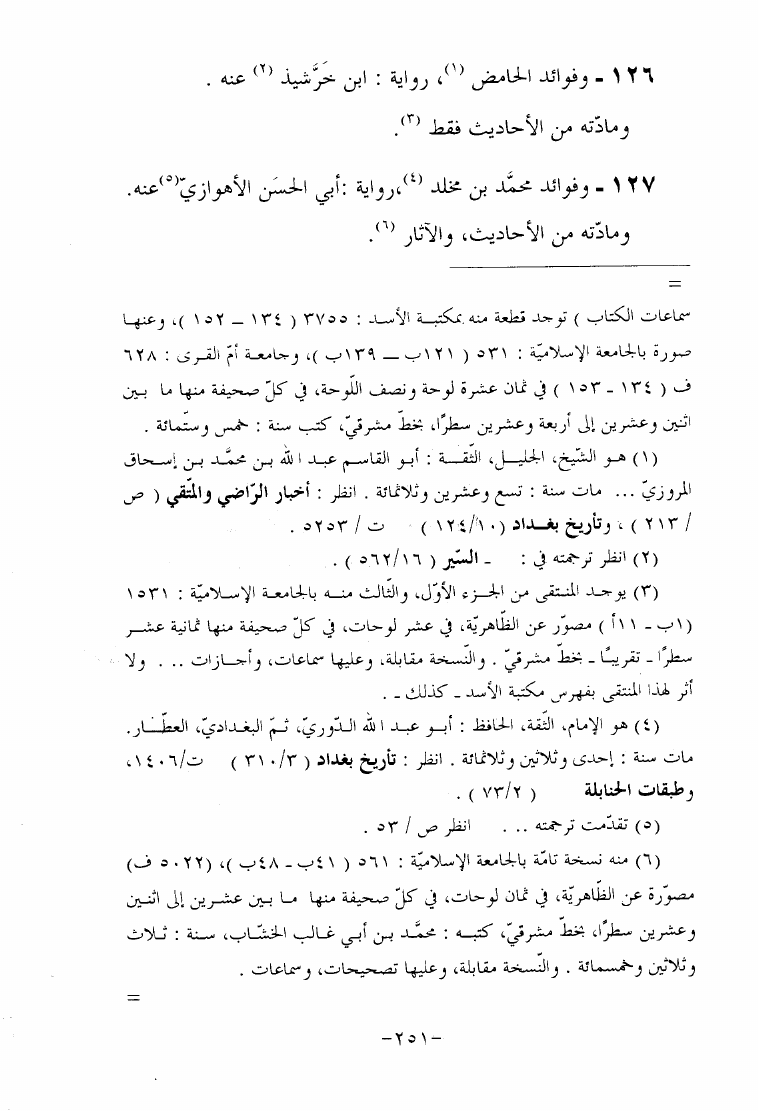 ١٢٦ - وفوائد الحامض (١)، رواية : ابن خَرَّشيذ (٢) عنه .
ومادّته من الأحاديث فقط (٣).
١٢٧ - وفوائد محمَّد بن مخلد (٤)،رواية :أبي الحسَن الأهوازيّ(٥)عنه.
ومادّته من الأحاديث، والآثار (٦).
=
سماعات الكتاب ) توجد قطعة منه بمكتبة الأسد : ٣٧٥٥ ( ١٣٤ – ١٥٢ )، وعنها
صورة بالجامعة الإسلاميّة : ٥٣١ ( ١٢١ب – ١٣٩ب )، وجامعة أمّ القرى : ٦٢٨
ف ( ١٣٤ - ١٥٣ ) في ثمان عشرة لوحة ونصف اللّوحة، في كلّ صحيفة منها ما بين
اثنين وعشرين إلى أربعة وعشرين سطرًا، بخطّ مشرقيّ، كتب سنة : خمس وستّمائة .
(١) هو الشّيخ، الجليل، الثّقة : أبو القاسم عبد الله بن محمَّد بن إسحاق
المروزيّ ... مات سنة : تسع وعشرين وثلاثمائة . انظر : أخبار الرّاضي والمتّقي ( ص
/ ٢١٣ ) ، وتأريخ بغداد (١٢٤/١٠ ) ت / ٥٢٥٣ .
(٢) انظر ترجمته في : - السّير ( ٥٦٢/١٦ ) .
(٣) يوجد المنتقى من الجزء الأوّل، والثّالث منه بالجامعة الإسلاميّة : ١٥٣١
(١ب - ١١أ ) مصوّر عن الظّاهريّة، في عشر لوحات، في كلّ صحيفة منها ثمانية عشر
سطرًا - تقريبًا - بخطّ مشرقيّ . والنّسخة مقابلة، وعليها سماعات، وأجازات ... ولا
أثر لهذا المنتقى بفهرس مكتبة الأسد - كذلك - .
(٤) هو الإمام، الثّقة، الحافظ : أبو عبد الله الدّوريّ، ثمّ البغداديّ، العطّار.
مات سنة : إحدى وثلاثين وثلاثمائة . انظر : تأريخ بغداد ( ٣١٠/٣ ) ت/١٤٠٦،
وطبقات الحنابلة ( ٧٣/٢ ) .
(٥) تقدّمت ترجمته ... انظر ص / ٥٣ .
(٦) منه نسخة تامّة بالجامعة الإسلاميّة : ٥٦١ ( ٤١ب - ٤٨ب )، (٥٠٢٢ ف)
مصوّرة عن الظّاهريّة، في ثمان لوحات، في كلّ صحيفة منها ما بين عشرين إلى اثنين
وعشرين سطرًا، بخطّ مشرقيّ، كتبه : محمَّد بن أبي غالب الخشّاب، سنة : ثلاث
وثلاثين وخمسمائة . والنّسخة مقابلة، وعليها تصحيحات، وسماعات .
=
-٢٥١-